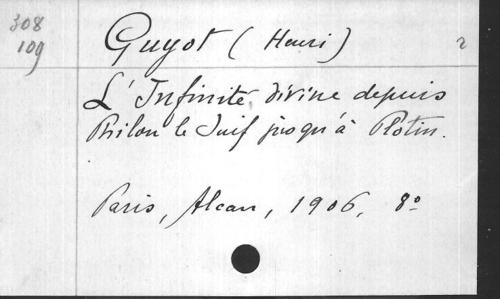 308
109
Guyot (Henri)
2
L'Infinité divine depuis
Philon le Juif jusqu'à Plotin.
Paris, Alcan, 1906. 8º